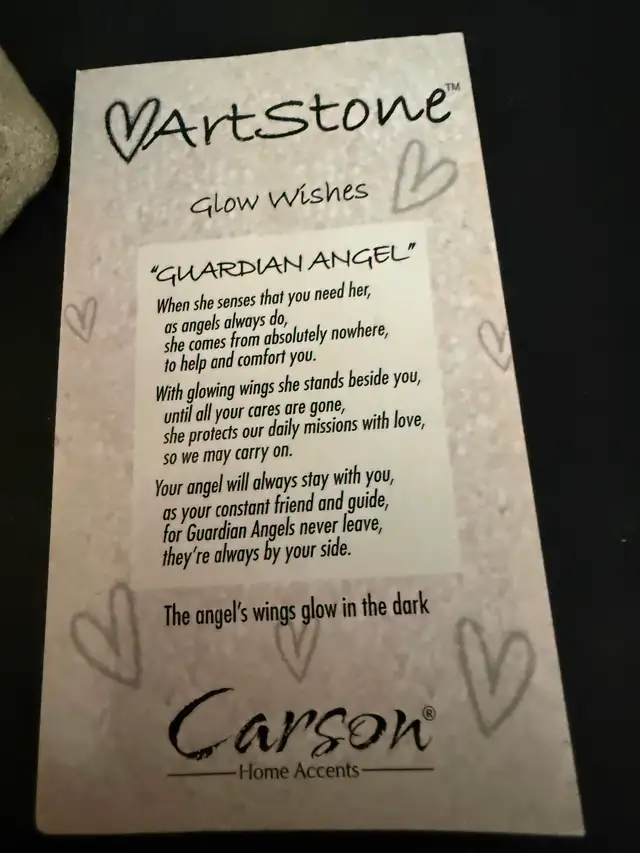 ArtStone™
Glow Wishes
"GUARDIAN ANGEL"
When she senses that you need her,
as angels always do,
she comes from absolutely nowhere,
to help and comfort you.
With glowing wings she stands beside you,
until all your cares are gone,
she protects our daily missions with love,
so we may carry on.
Your angel will always stay with you,
as your constant friend and guide,
for Guardian Angels never leave,
they're always by your side.
The angel's wings glow in the dark
Carson®
Home Accents